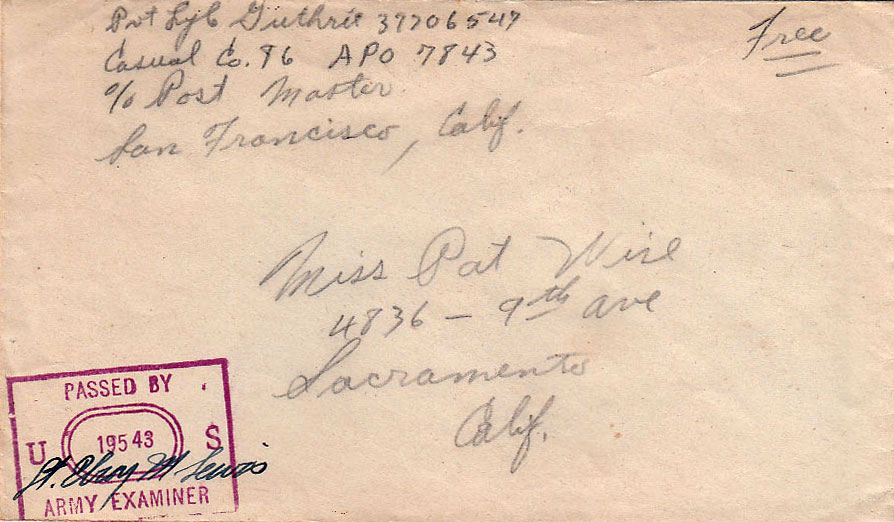 Pvt Lyle Guthrie 39706547
Casual Co. 96 APO 7843
c/o Post Master
San Francisco, Calif.
Free
Miss Pat Wise
4836 - 9th ave
Sacramento
Calif.
PASSED BY
U 19543 S
Lewis
ARMY EXAMINER